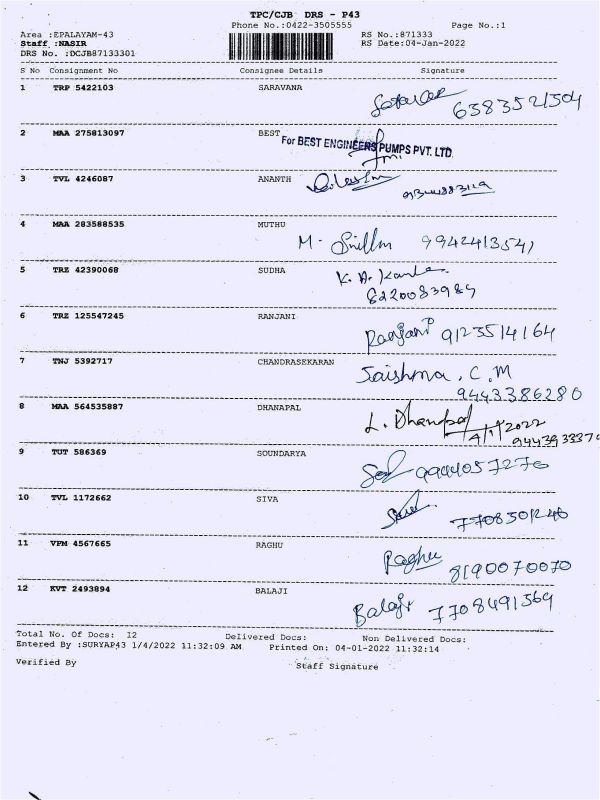 TPC/CJB DRS - P43
Phone No.:0422-3505555 Page No.:1
Area :EPALAYAM-43 RS No.:871333
Staff :NASIR RS Date:04-Jan-2022
DRS No. :DCJB87133301
S No Consignment No Consignee Details Signature
1 TRP 5422103 SARAVANA
6383521504
2 MAA 275813097 BEST
For BEST ENGINEERS PUMPS PVT. LTD
3 TVL 4246087 ANANTH
4 MAA 283588535 MUTHU
M. 9942413541
5 TRZ 42390068 SUDHA
K. A.
8220083984
6 TRZ 125547245 RANJANI
Ranjani 9123514164
7 TNJ 5392717 CHANDRASEKARAN
Jaishma. C. M
9443386280
8 MAA 564535887 DHANAPAL
L. Dhanapal
4/1/2022
9443933370
9 TUT 586369 SOUNDARYA
9944057270
10 TVL 1172662 SIVA
11 VPM 4567665 RAGHU
Raghu
8190070070
12 KVT 2493894 BALAJI
Balaji 7708491569
Total No. Of Docs: 12 Delivered Docs: Non Delivered Docs:
Entered By :SURYAP43 1/4/2022 11:32:09 AM Printed On: 04-01-2022 11:32:14
Verified By Staff Signature